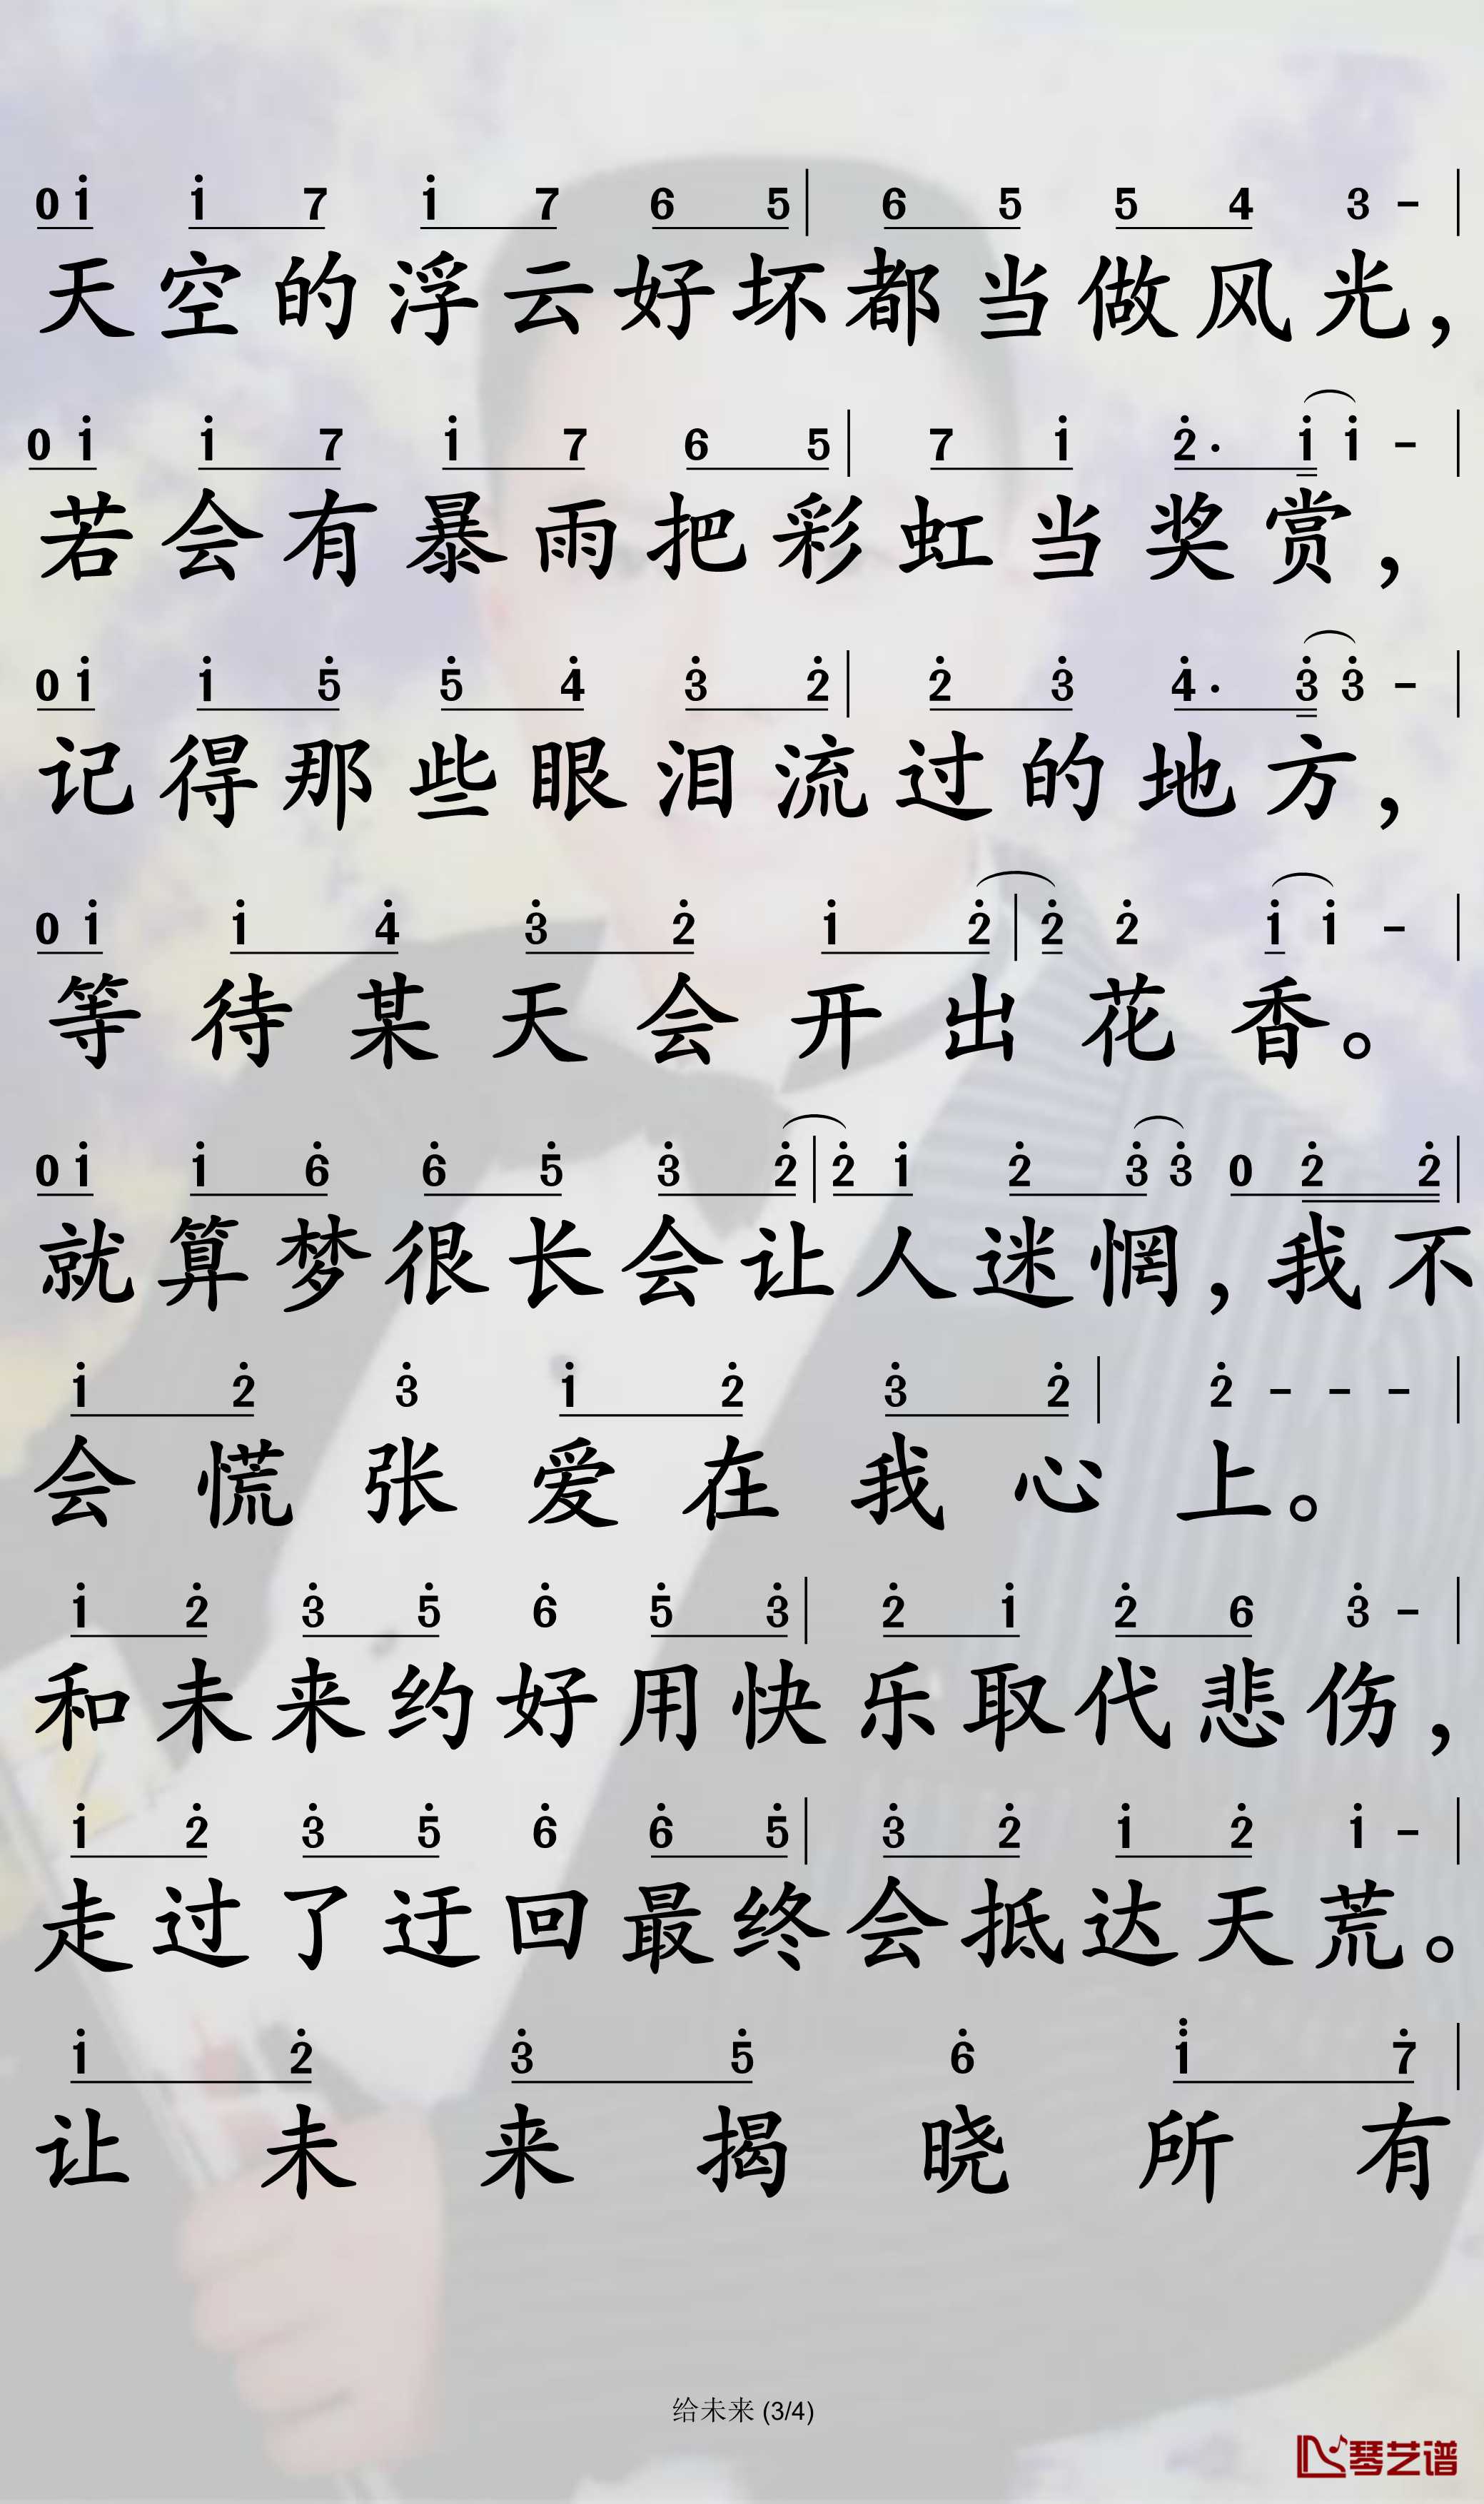 0 i i 7 i 7 6 5 | 6 5 5 4 3 - |
天空的浮云好坏都当做风光，
0 i i 7 i 7 6 5 | 7 i 2̇· i i - |
若会有暴雨把彩虹当奖赏，
0 i i 5̇ 5̇ 4̇ 3̇ 2̇ | 2̇ 3̇ 4̇· 3̇ 3̇ - |
记得那些眼泪流过的地方，
0 i i 4̇ 3̇ 2̇ i 2̇ | 2̇ 2̇ i i - |
等待某天会开出花香。
0 i i 6̇ 6̇ 5̇ 3̇ 2̇ | 2̇ i 2̇ 3̇ 3̇ 0 2̇ 2̇ |
就算梦很长会让人迷惘，我不
i 2̇ 3̇ i 2̇ 3̇ 2̇ | 2̇ - - - |
会慌张爱在我心上。
i 2̇ 3̇ 5̇ 6̇ 5̇ 3̇ | 2̇ i 2̇ 6 3̇ - |
和未来约好用快乐取代悲伤，
i 2̇ 3̇ 5̇ 6̇ 6̇ 5̇ | 3̇ 2̇ i 2̇ i - |
走过了迂回最终会抵达天荒。
i 2̇ 3̇ 5̇ 6̇ i̇ 7̇ |
让未来揭晓所有
给未来 (3/4)
琴艺谱